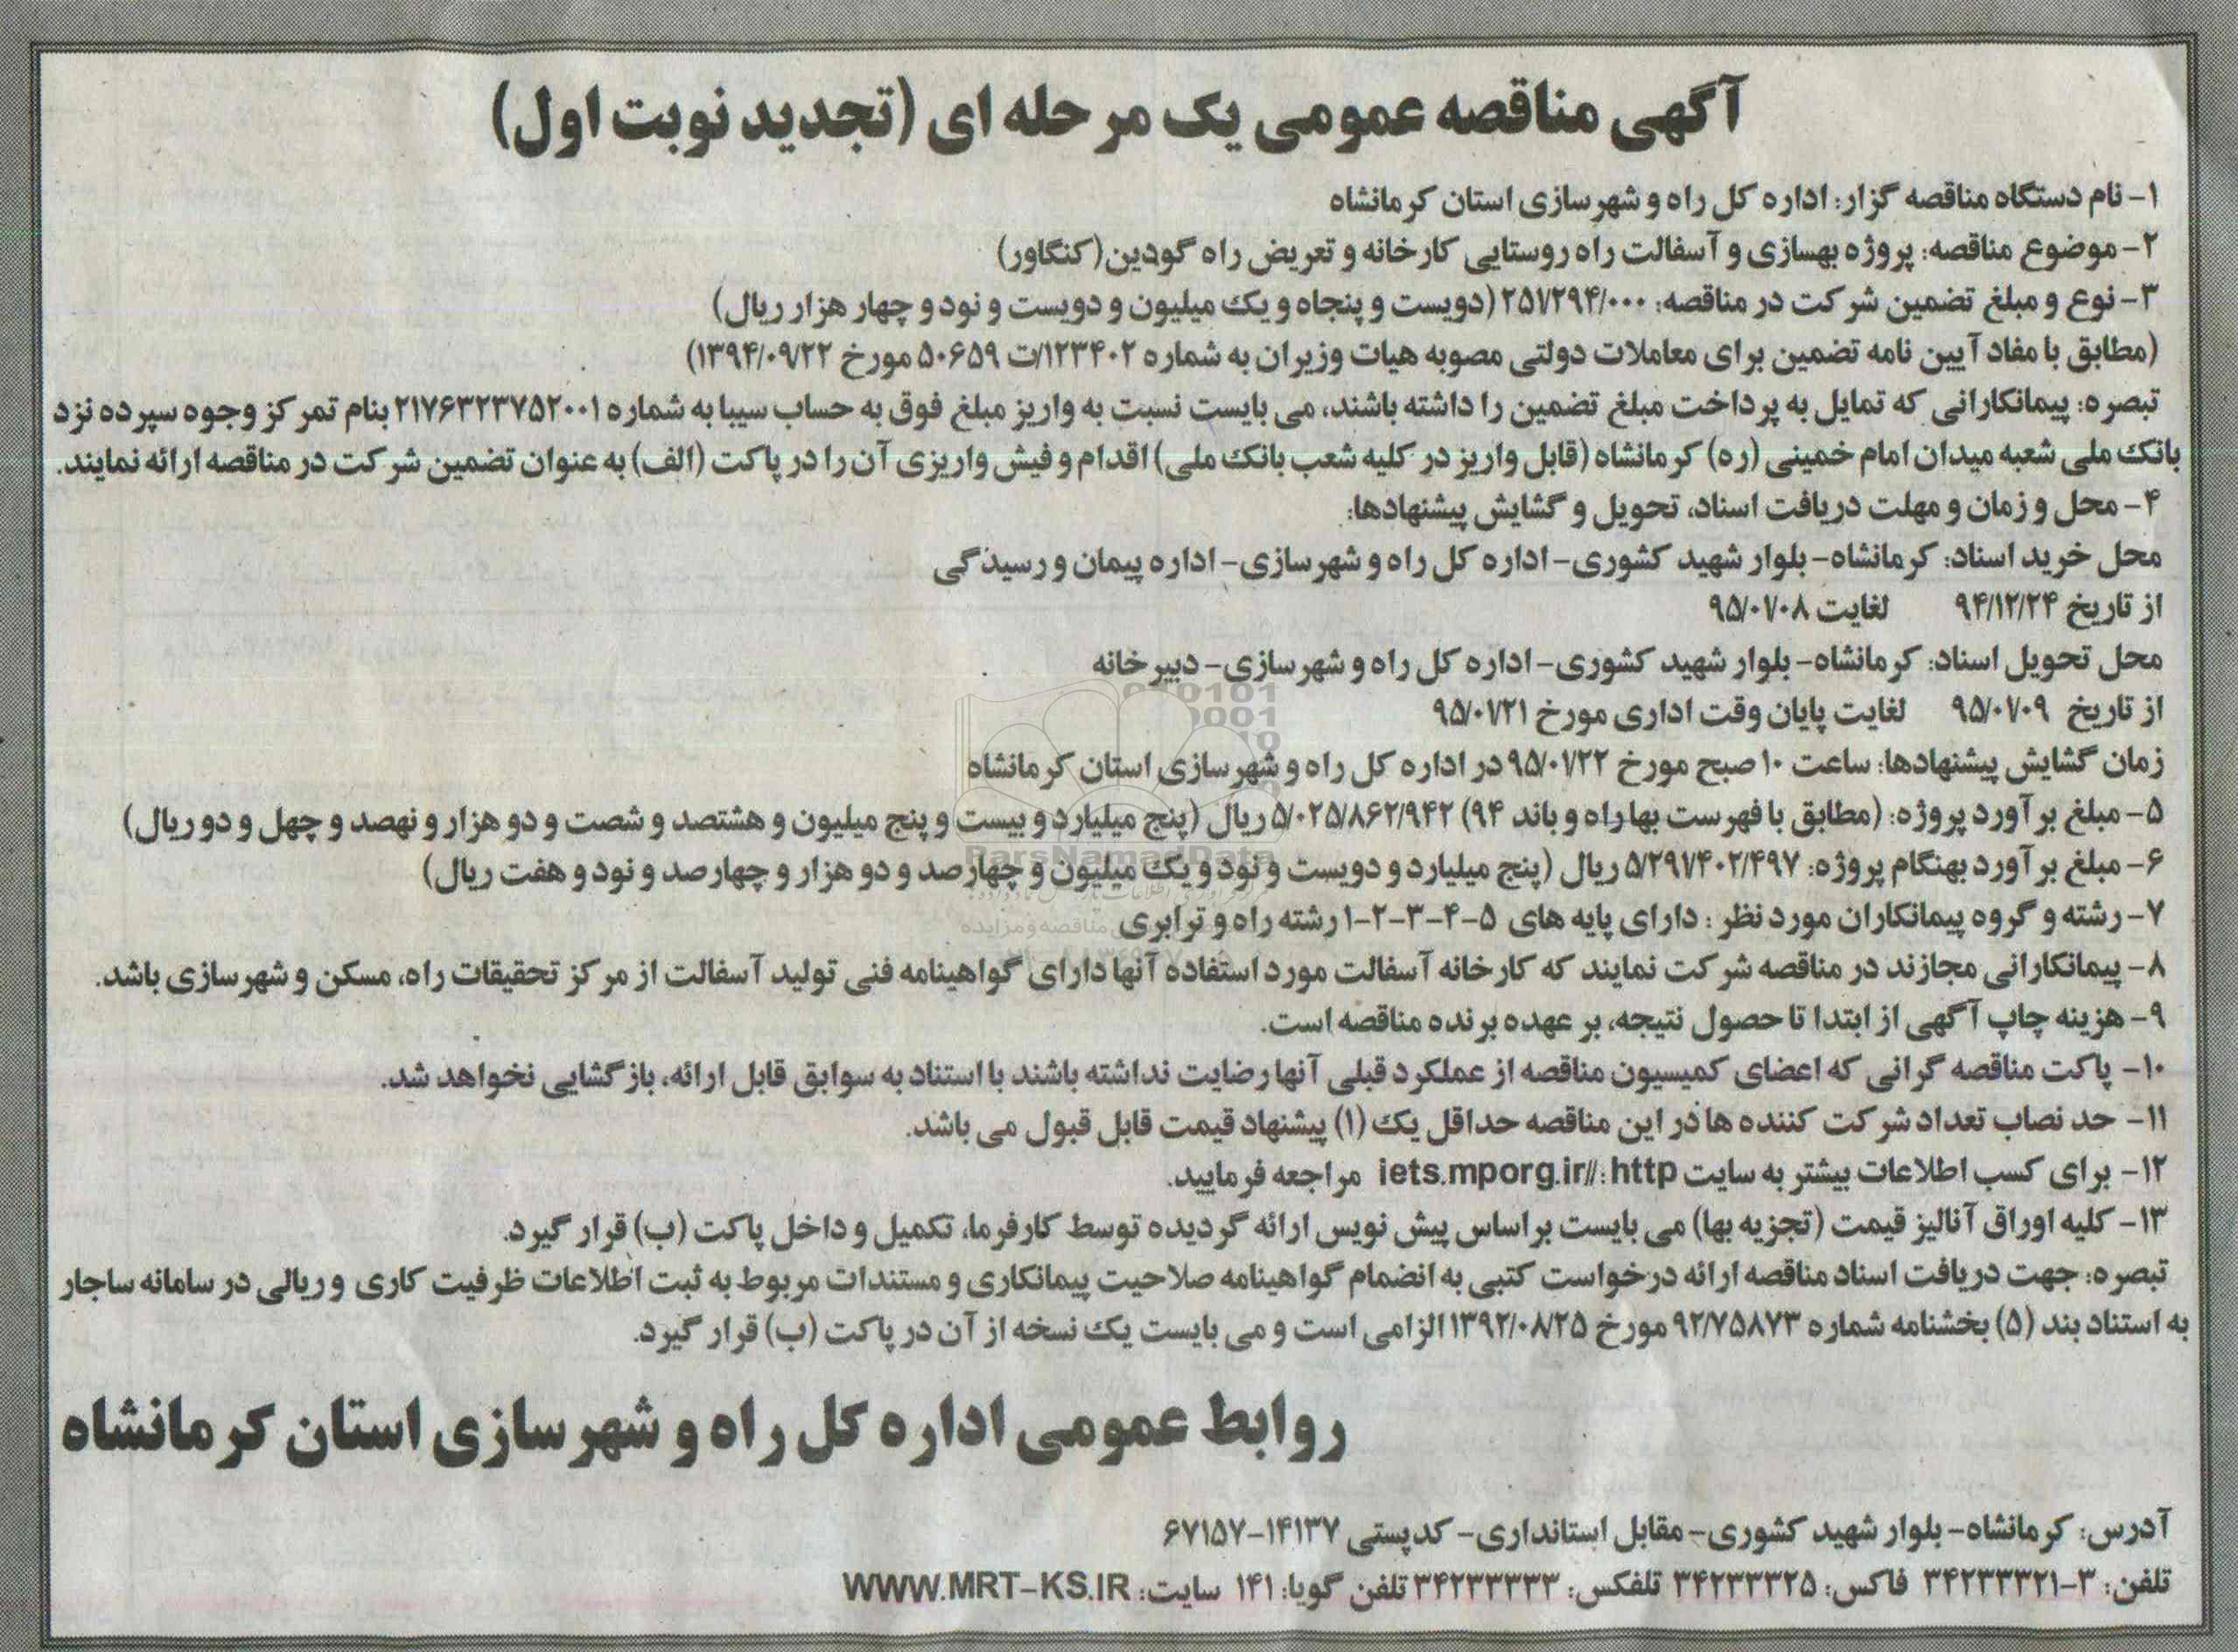 آگهی مناقصه عمومی یک مرحله ای (تجدید نوبت اول)
۱- نام دستگاه مناقصه گزار: اداره کل راه و شهرسازی استان کرمانشاه
۲- موضوع مناقصه: پروژه بهسازی و آسفالت راه روستایی کارخانه و تعریض راه گودین(کنگاور)
۳- نوع و مبلغ تضمین شرکت در مناقصه: ۲۵۱/۲۹۴/۰۰۰ (دویست و پنجاه و یک میلیون و دویست و نود و چهار هزار ریال)
(مطابق با مفاد آیین نامه تضمین برای معاملات دولتی مصوبه هیات وزیران به شماره ۱۲۳۴۰۲/ت ۵۰۶۵۹ مورخ ۱۳۹۴/۰۹/۲۲)
تبصره: پیمانکارانی که تمایل به پرداخت مبلغ تضمین را داشته باشند، می بایست نسبت به واریز مبلغ فوق به حساب سیبا به شماره ۲۱۷۶۳۲۳۷۵۲۰۰۱ بنام تمرکز وجوه سپرده نزد
بانک ملی شعبه میدان امام خمینی (ره) کرمانشاه (قابل واریز در کلیه شعب بانک ملی) اقدام و فیش واریزی آن را در پاکت (الف) به عنوان تضمین شرکت در مناقصه ارائه نمایند.
۴- محل و زمان و مهلت دریافت اسناد، تحویل و گشایش پیشنهادها:
محل خرید اسناد: کرمانشاه- بلوار شهید کشوری- اداره کل راه و شهرسازی- اداره پیمان و رسیدگی
از تاریخ ۹۴/۱۲/۲۴ لغایت ۹۵/۰۱/۰۸
محل تحویل اسناد: کرمانشاه- بلوار شهید کشوری- اداره کل راه و شهرسازی- دبیرخانه
از تاریخ ۹۵/۰۱/۰۹ لغایت پایان وقت اداری مورخ ۹۵/۰۱/۲۱
زمان گشایش پیشنهادها: ساعت ۱۰ صبح مورخ ۹۵/۰۱/۲۲ در اداره کل راه و شهرسازی استان کرمانشاه
۵- مبلغ برآورد پروژه: (مطابق با فهرست بها راه و باند ۹۴) ۵/۰۲۵/۸۶۲/۹۴۲ ریال (پنج میلیارد و بیست و پنج میلیون و هشتصد و شصت و دو هزار و نهصد و چهل و دو ریال)
ParsNamadData
۶- مبلغ برآورد بهنگام پروژه: ۵/۲۹۱/۴۰۲/۴۹۷ ریال (پنج میلیارد و دویست و نود و یک میلیون و چهارصد و دو هزار و چهارصد و نود و هفت ریال)
۷- رشته و گروه پیمانکاران مورد نظر : دارای پایه های ۵-۴-۳-۲-۱ رشته راه و ترابری
۸- پیمانکارانی مجازند در مناقصه شرکت نمایند که کارخانه آسفالت مورد استفاده آنها دارای گواهینامه فنی تولید آسفالت از مرکز تحقیقات راه، مسکن و شهرسازی باشد.
۹- هزینه چاپ آگهی از ابتدا تا حصول نتیجه، بر عهده برنده مناقصه است.
۱۰- پاکت مناقصه گرانی که اعضای کمیسیون مناقصه از عملکرد قبلی آنها رضایت نداشته باشند با استناد به سوابق قابل ارائه، بازگشایی نخواهد شد.
۱۱- حد نصاب تعداد شرکت کننده ها در این مناقصه حداقل یک (۱) پیشنهاد قیمت قابل قبول می باشد.
۱۲- برای کسب اطلاعات بیشتر به سایت iets.mporg.ir//:http مراجعه فرمایید.
۱۳- کلیه اوراق آنالیز قیمت (تجزیه بها) می بایست بر اساس پیش نویس ارائه گردیده توسط کارفرما، تکمیل و داخل پاکت (ب) قرار گیرد.
تبصره: جهت دریافت اسناد مناقصه ارائه درخواست کتبی به انضمام گواهینامه صلاحیت پیمانکاری و مستندات مربوط به ثبت اطلاعات ظرفیت کاری و ریالی در سامانه ساجار
به استناد بند (۵) بخشنامه شماره ۹۲/۷۵۸۷۳ مورخ ۱۳۹۲/۰۸/۲۵ الزامی است و می بایست یک نسخه از آن در پاکت (ب) قرار گیرد.
روابط عمومی اداره کل راه و شهرسازی استان کرمانشاه
آدرس: کرمانشاه- بلوار شهید کشوری- مقابل استانداری- کدپستی ۱۴۱۳۷-۶۷۱۵۷
تلفن: ۳-۳۴۲۳۳۳۲۱ فاکس: ۳۴۲۳۳۳۲۵ تلفکس: ۳۴۲۳۳۳۳۳ تلفن گویا: ۱۴۱ سایت: WWW.MRT-KS.IR